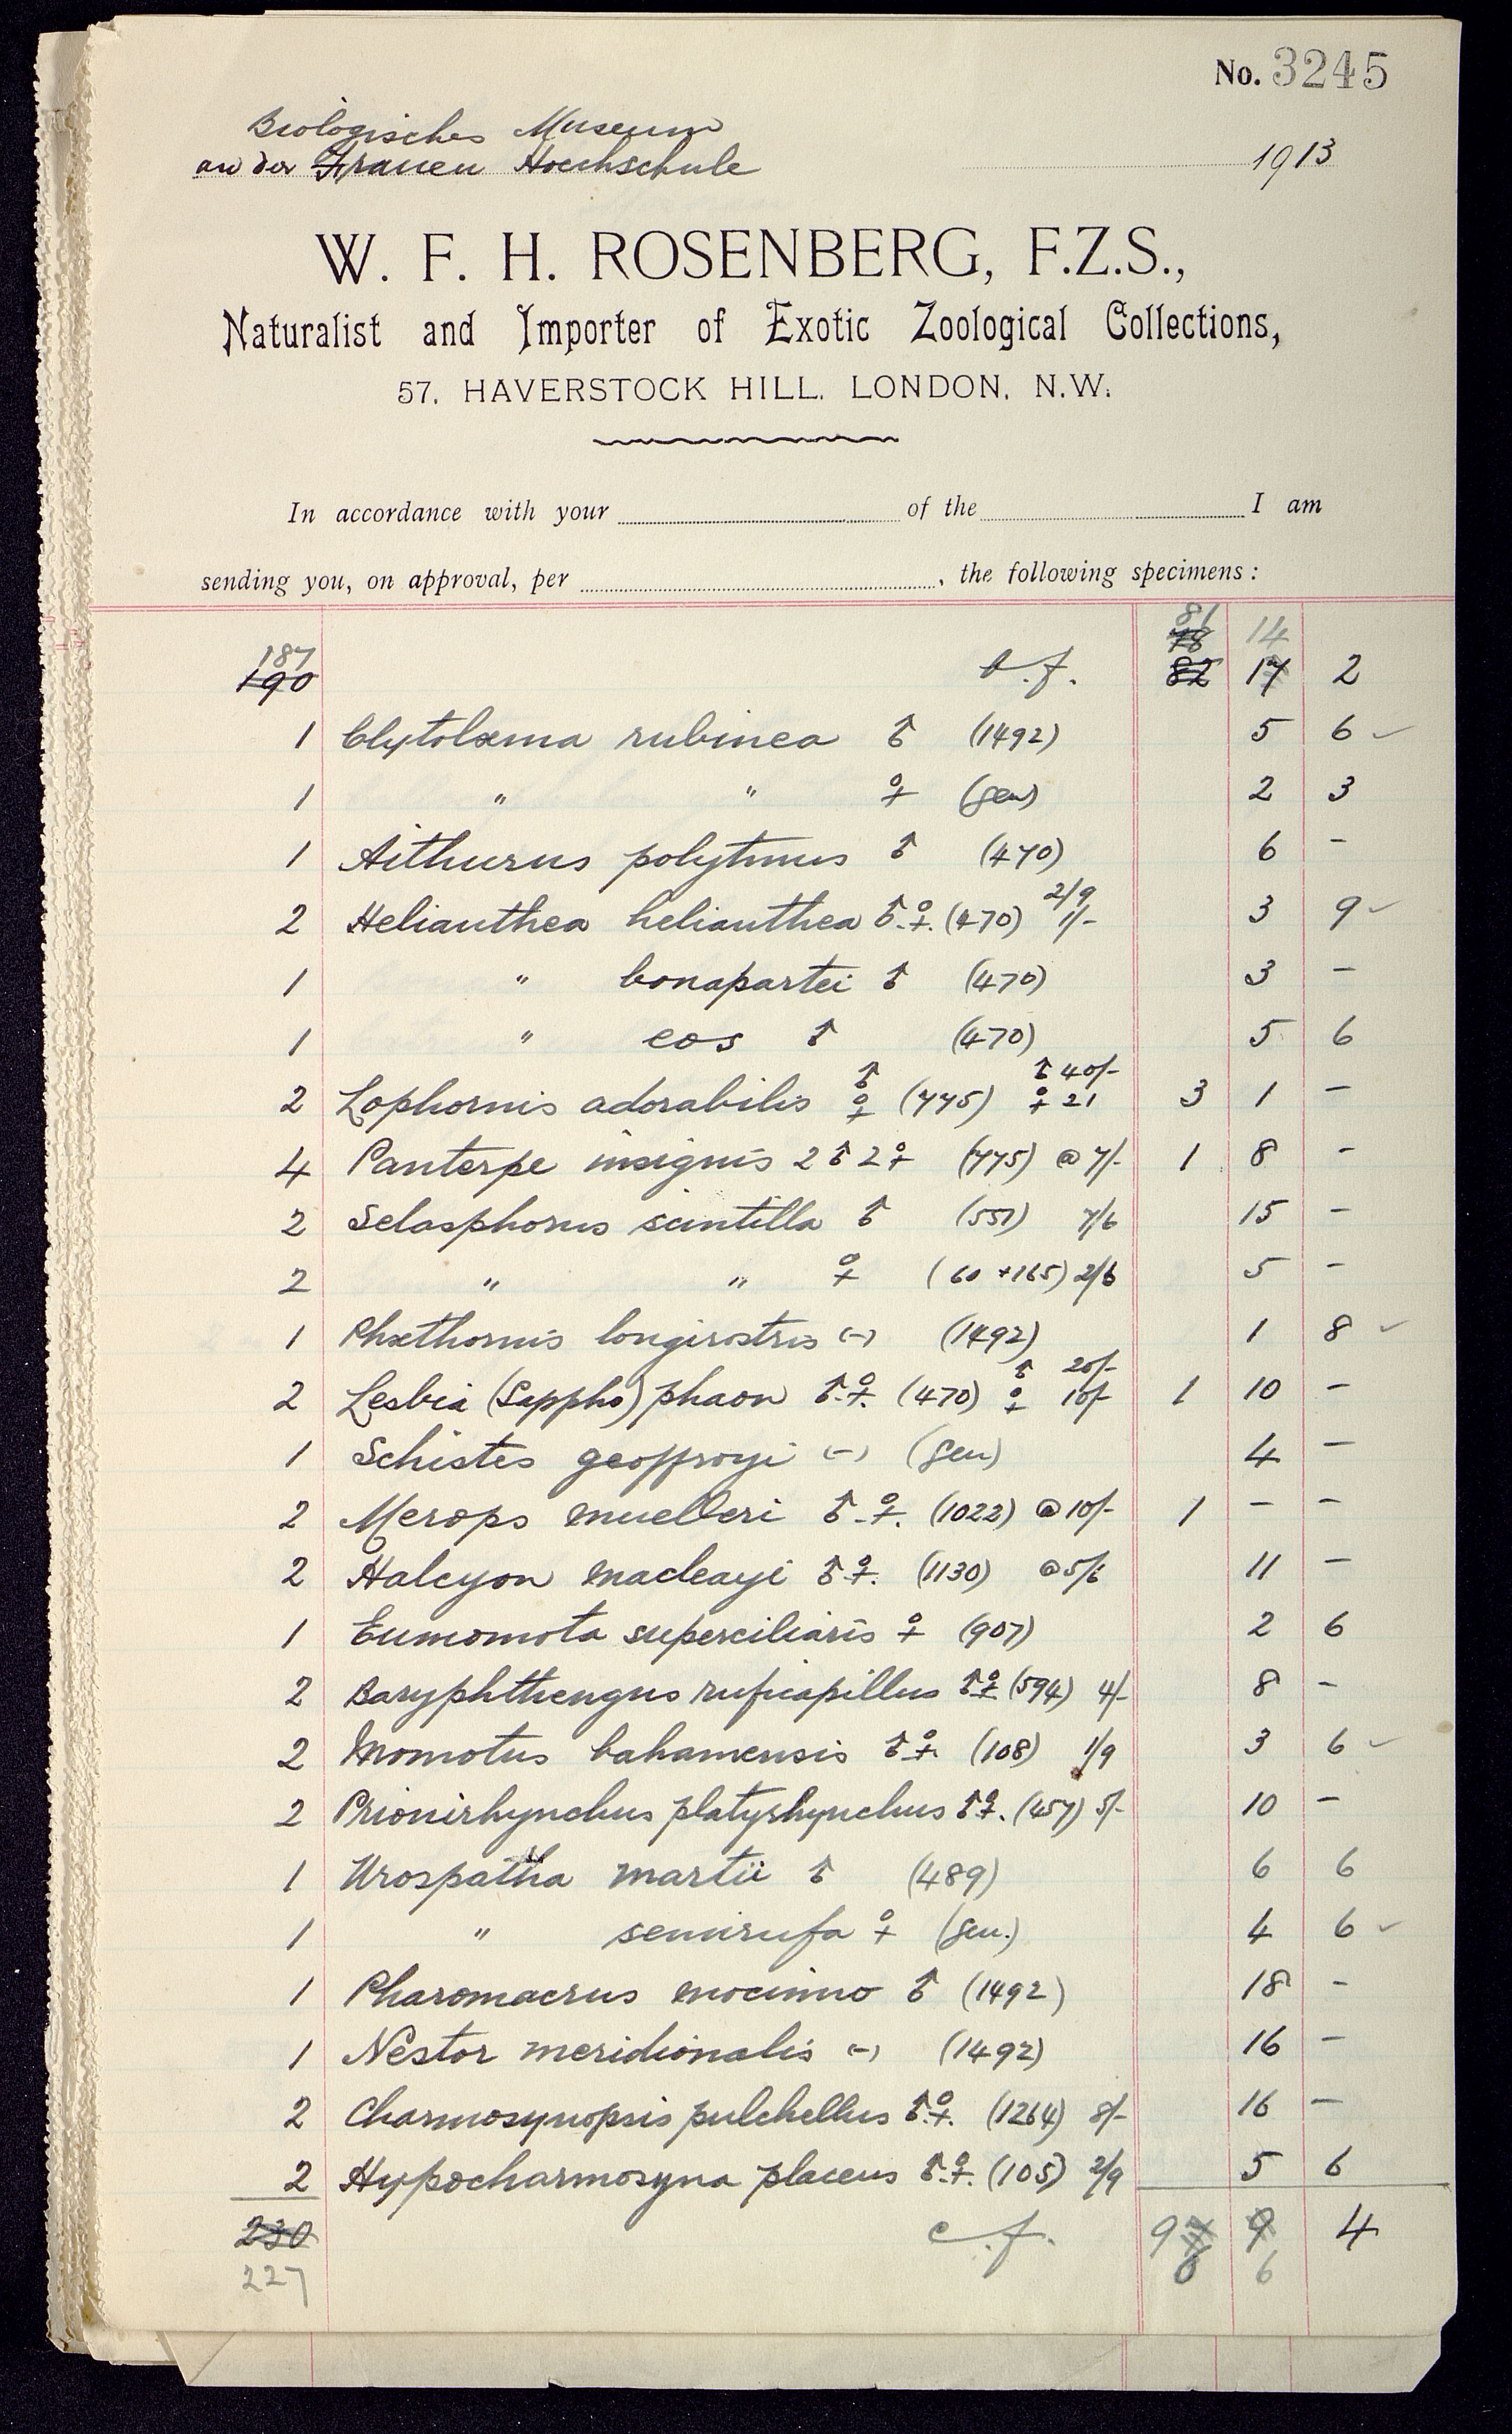 No. 3245
Biologisches Museum
an der Frauen Hochschule 1913
W. F. H. ROSENBERG, F.Z.S.,
Naturalist and Importer of Exotic Zoological Collections,
57, HAVERSTOCK HILL, LONDON, N.W.
In accordance with your of the I am
sending you, on approval, per , the following specimens:
187 81 14
78
190 b.f. 82 17 2
1 Clytolæma rubinea ♂ (1492) 5 6 ✓
1 " " ♀ (gen) 2 3
1 Aithurus polytmus ♂ (470) 6 -
2 Helianthea helianthea ♂.♀. (470) 2/9 1/- 3 9 ✓
1 " bonapartei ♂ (470) 3 -
1 " eos ♂ (470) 5 6
2 Lophornis adorabilis ♂ ♀ (775) ♂ 40/- ♀ 21 3 1 -
4 Panterpe insignis 2♂ 2♀ (775) @ 7/- 1 8 -
2 Selasphorus scintilla ♂ (551) 7/6 15 -
2 " " ♀ (60 + 165) 2/6 5 -
1 Phæthornis longirostris (-) (1492) 1 8 ✓
2 Lesbia (Sappho) phaon ♂.♀. (470) ♂ 20/- ♀ 10/- 1 10 -
1 Schistes geoffroyi (-) (gen) 4 -
2 Merops muelleri ♂.♀. (1022) @ 10/- 1 - -
2 Halcyon macleayi ♂ ♀. (1130) @ 5/6 11 -
1 Eumomota superciliaris ♀ (907) 2 6
2 Baryphthengus ruficapillus ♂♀ (594) 4/- 8 -
2 Momotus bahamensis ♂ ♀ (108) 1/9 3 6 ✓
2 Prionirhynchus platyrhynchus ♂♀. (457) 5/- 10 -
1 Urospatha martii ♂ (489) 6 6
1 " semirufa ♀ (gen.) 4 6 ✓
1 Pharomacrus mocinno ♂ (1492) 18 -
1 Nestor meridionalis (-) (1492) 16 -
2 Charmosynopsis pulchellus ♂.♀. (1264) 8/- 16 -
2 Hypocharmosyna placens ♂.♀. (105) 2/9 5 6
230 c.f. 97 9 4
227 6 6